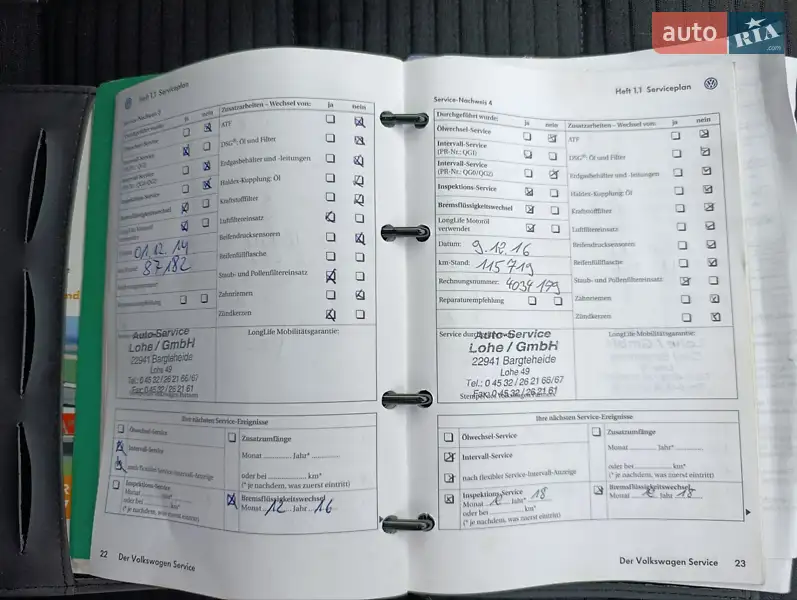 auto RIA .com
Heft 1.1 Serviceplan
Service-Nachweis 3
Durchgeführt wurde:
ja nein
Zusatzarbeiten – Wechsel von:
ja nein
Ölwechsel-Service
ATF
Intervall-Service
DSG®: Öl und Filter
Intervall-Service
(PR-Nr.: QG0/QG2)
Erdgasbehälter und -leitungen
Inspektions-Service
Haldex-Kupplung: Öl
Kraftstofffilter
Bremsflüssigkeitswechsel
Luftfiltereinsatz
Reifendrucksensoren
01.12.14
Reifenfüllflasche
87182
Staub- und Pollenfiltereinsatz
Zahnriemen
Zündkerzen
LongLife Mobilitätsgarantie:
Auto-Service
Lohe / GmbH
22941 Bargteheide
Lohe 49
Tel.: 0 45 32 / 26 21 66/67
Fax: 0 45 32 / 26 21 61
Ihre nächsten Service-Ereignisse
Ölwechsel-Service
Zusatzumfänge
Intervall-Service
Monat Jahr*
nach flexibler Service-Intervall-Anzeige
oder bei km*
(* je nachdem, was zuerst eintritt)
Inspektions-Service
Monat Jahr*
oder bei km*
(* je nachdem, was zuerst eintritt)
Bremsflüssigkeitswechsel
Monat 12 Jahr 16
22 Der Volkswagen Service
Service-Nachweis 4
Heft 1.1 Serviceplan
Durchgeführt wurde:
ja nein
Zusatzarbeiten – Wechsel von:
ja nein
Ölwechsel-Service
ATF
Intervall-Service
(PR-Nr.: QG1)
DSG®: Öl und Filter
Intervall-Service
(PR-Nr.: QG0/QG2)
Erdgasbehälter und -leitungen
Inspektions-Service
Haldex-Kupplung: Öl
Bremsflüssigkeitswechsel
Kraftstofffilter
LongLife Motoröl
verwendet
Luftfiltereinsatz
Datum: 9.12.16
Reifendrucksensoren
km-Stand: 115719
Reifenfüllflasche
Rechnungsnummer: 4034179
Staub- und Pollenfiltereinsatz
Reparaturempfehlung
Zahnriemen
Zündkerzen
LongLife Mobilitätsgarantie:
Auto-Service
Lohe / GmbH
22941 Bargteheide
Lohe 49
Tel.: 0 45 32 / 26 21 66/67
Fax: 0 45 32 / 26 21 61
Ihre nächsten Service-Ereignisse
Ölwechsel-Service
Zusatzumfänge
Intervall-Service
Monat Jahr*
nach flexibler Service-Intervall-Anzeige
oder bei km*
(* je nachdem, was zuerst eintritt)
Inspektions-Service
Monat 12 Jahr* 18
oder bei km*
(* je nachdem, was zuerst eintritt)
Bremsflüssigkeitswechsel
Monat 12 Jahr 18
Der Volkswagen Service 23